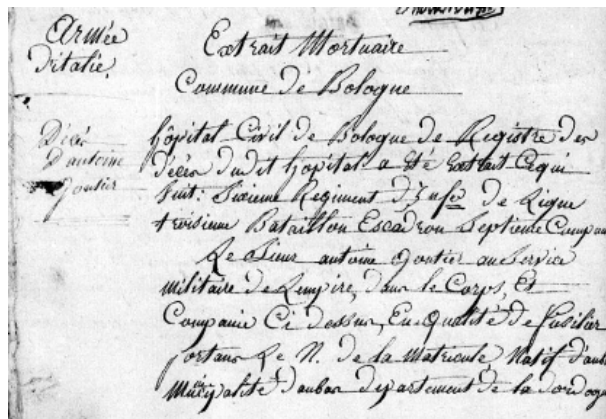 Armée
d'italie.
Extrait Mortuaire
Commune de Bologne
Décès
d'antoine
Gontier
hôpital Civil de Bologne de Registre des
décès dudit hopital a été Extrait Cequi
Suit. Sixieme Regiment d'Infie de Ligne
troisieme Bataillon Escadron Septieme Compa
Le Sieur antoine Gontier au Service
militaire de Lempire, dans le Corps, Et
Compagnie Ci dessus, En Qualité de fusilier
portant Le N. de la Matricule Natif d'au
Municipalité daubas departement de la dordog